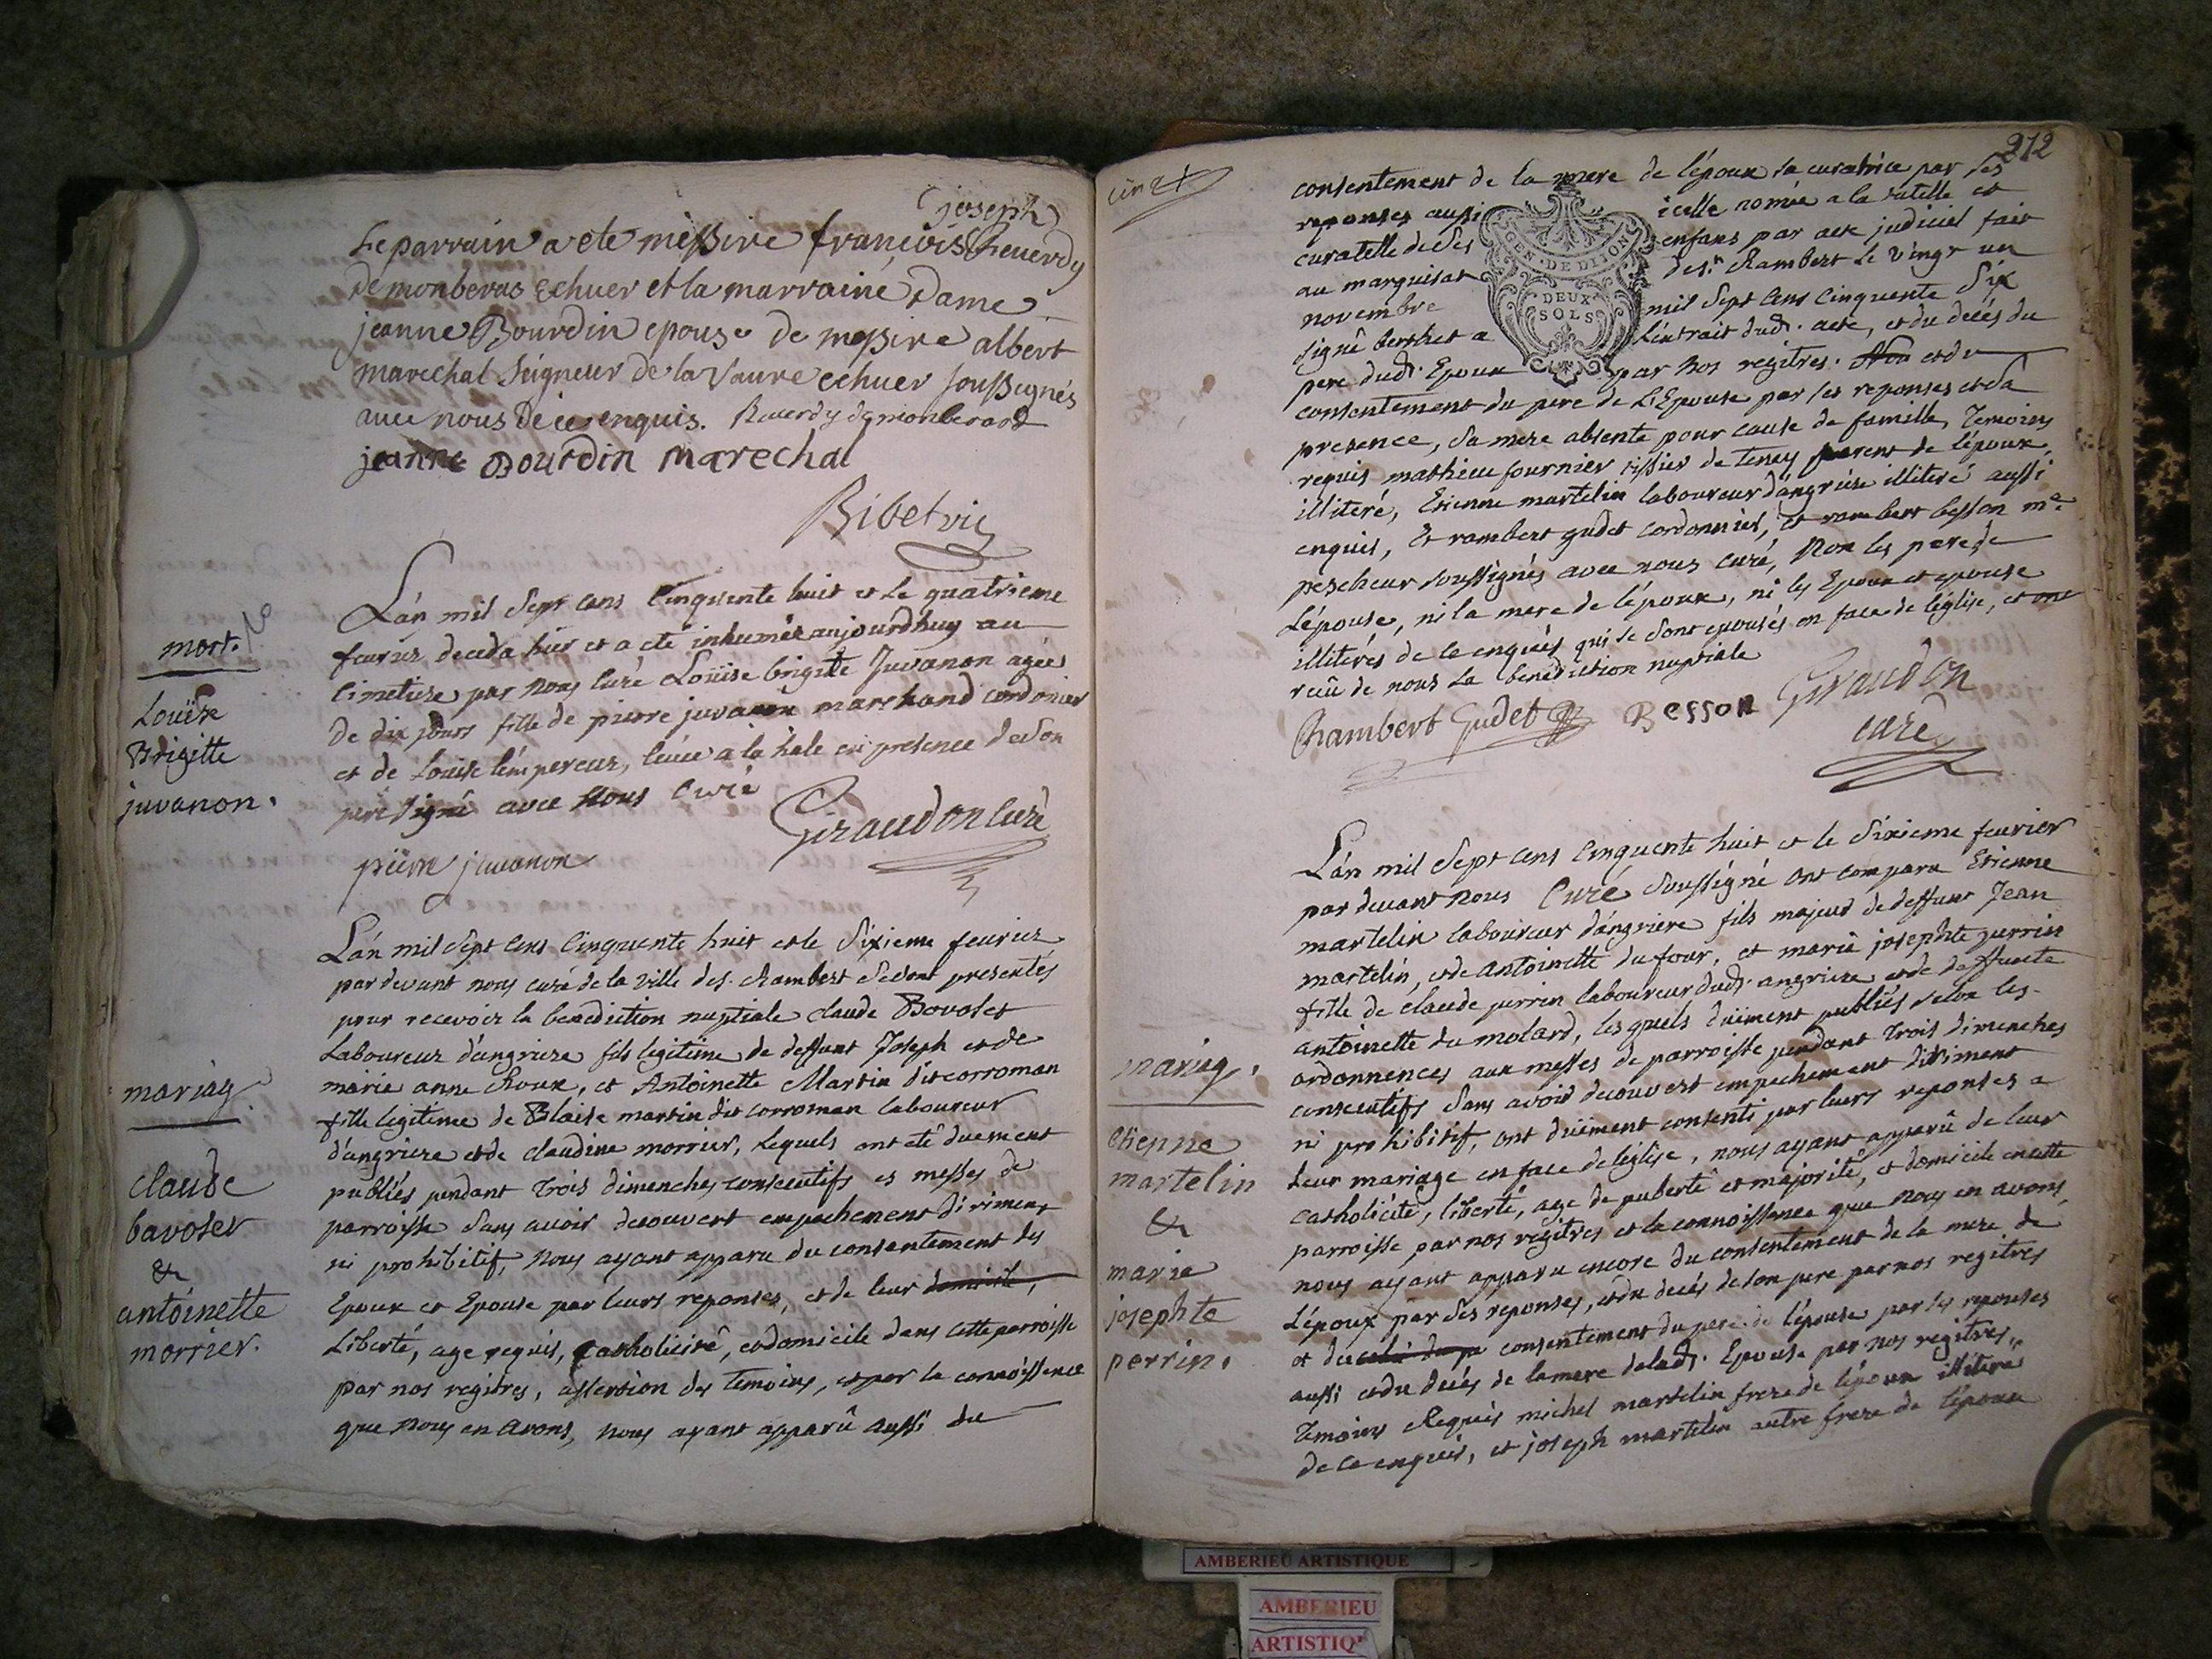 joseph
Le parrain a ete messire francois Reverdy
De monberao echuer et la marraine Dame
jeanne Bourdin epouse De messire albert
marechal Seigneur de la Vaure echuer soussignés
avec nous De ce enquis. Reverdy de monberaod
jeanne Bourdin Marechal
Ribet vic
mort.
Louïse
Brigitte
juvanon.
L'an mil Sept cens Cinquente huit et le quatrieme
fevrier deceda hier et a eté inhumée aujourdhuy au
Cimetiere par nous Curé Louïse brigite Juvanon agée
De dix jours fille de pierre juvanon marchand cordonier
et de Louïse l'empereur, levée a la hale en presence de son
pere signé avec nous Curé
Giraudon curé
pierre juvanon
mariag.
claude
bavoset
&
antoinette
morrier.
L'an mil Sept Cens Cinquente huit et le Sixieme fevrier
par devant nous curé de la ville de s. Rambert se sont presentés
pour recevoir la benediction nuptiale claude Bovoset
Laboureur d'angriere fils legitime de deffunt Joseph et de
marie anne Roux, et Antoinette Martin dit corroman
fille legitime de Blaise martin dit corroman laboureur
d'angriere et de claudine morrier, Lequels ont eté duement
publiés pendant trois dimenches consecutifs es messes de
parroisse sans avoir decouvert empechement dirimens
ni prohibitif, nous ayant apparu du consentement des
Epoux et Epouse par leurs reponses, et de leur domicile,
Liberté, age requis, catholicité, et domicile dans cette parroisse
par nos regitres, assertion des temoins, et par la connoissence
que nous en avons, nous ayant apparû aussi du
212
consentement de la mere de l'époux sa curatrice par ses
reponses aussi icelle nomée a la tutelle et
curatelle de ses enfans par acte judiciel fait
au marquisat de s.t Rambert le vingt un
novembre mil Sept Cens Cinquente Six
signé berthet a L'extrait dud. acte, et du decés du
pere dud. Epoux par nos regitres. et du
consentement du pere de L'Epouse par ses reponses et sa
presence, sa mere absente pour cause de famille, Temoins
requis mathieu fournier tissier de tenay parent de l'époux,
illiteré, Etienne martelin laboureur d'angriere illiteré aussi
enquis, Et rambert gudet cordonnier, et rambert besson m.e
pescheur soussignés avec nous curé, Non les pere de
L'épouse, ni la mere de l'époux, ni les Epoux et epouse
illiterés de ce enquis qui se sont epousés en face de l'église, et ont
reçû de nous la benediction nuptiale
Rambert Gudet Besson Giraudon
curé
GEN. DE DIJON
DEUX
SOLS
mariag.
etienne
martelin
&
marie
josephte
perrin.
L'an mil Sept Cens Cinquente huit et le Sixieme fevrier
par devant nous Curé Soussigné ont comparu Etienne
martelin laboureur d'angriere fils majeur de deffunt Jean
martelin, et de antoinette du four, et marie josephte perrin
fille de claude perrin laboureur dud. angriere et de deffunte
antoinette du molard, lesquels dûement publiés selon les
ordonnences aux messes de parroisse pendant trois dimenches
consecutifs sans avoir decouvert empechement dirimens
ni prohibitif, ont dûement consenti par leurs reponses a
Leur mariage en face de l'église, nous ayant apparû de leur
catholicité, liberté, age de puberté et majorité, et domicile en cette
parroisse par nos regitres et la connoissence que nous en avons,
nous ayant apparu encore du consentement de la mere de
L'époux par ses reponses, et du decés de son pere par nos regitres
et du consentement du pere de l'épouse par ses reponses
aussi et du decés de la mere de lad. Epouse par nos regitres.
Temoins Requis michel martelin frere de l'époux illiteré
de ce enquis, et joseph martelin autre frere de l'époux
AMBERIEU ARTISTIQUE
AMBERIEU
ARTISTIQ